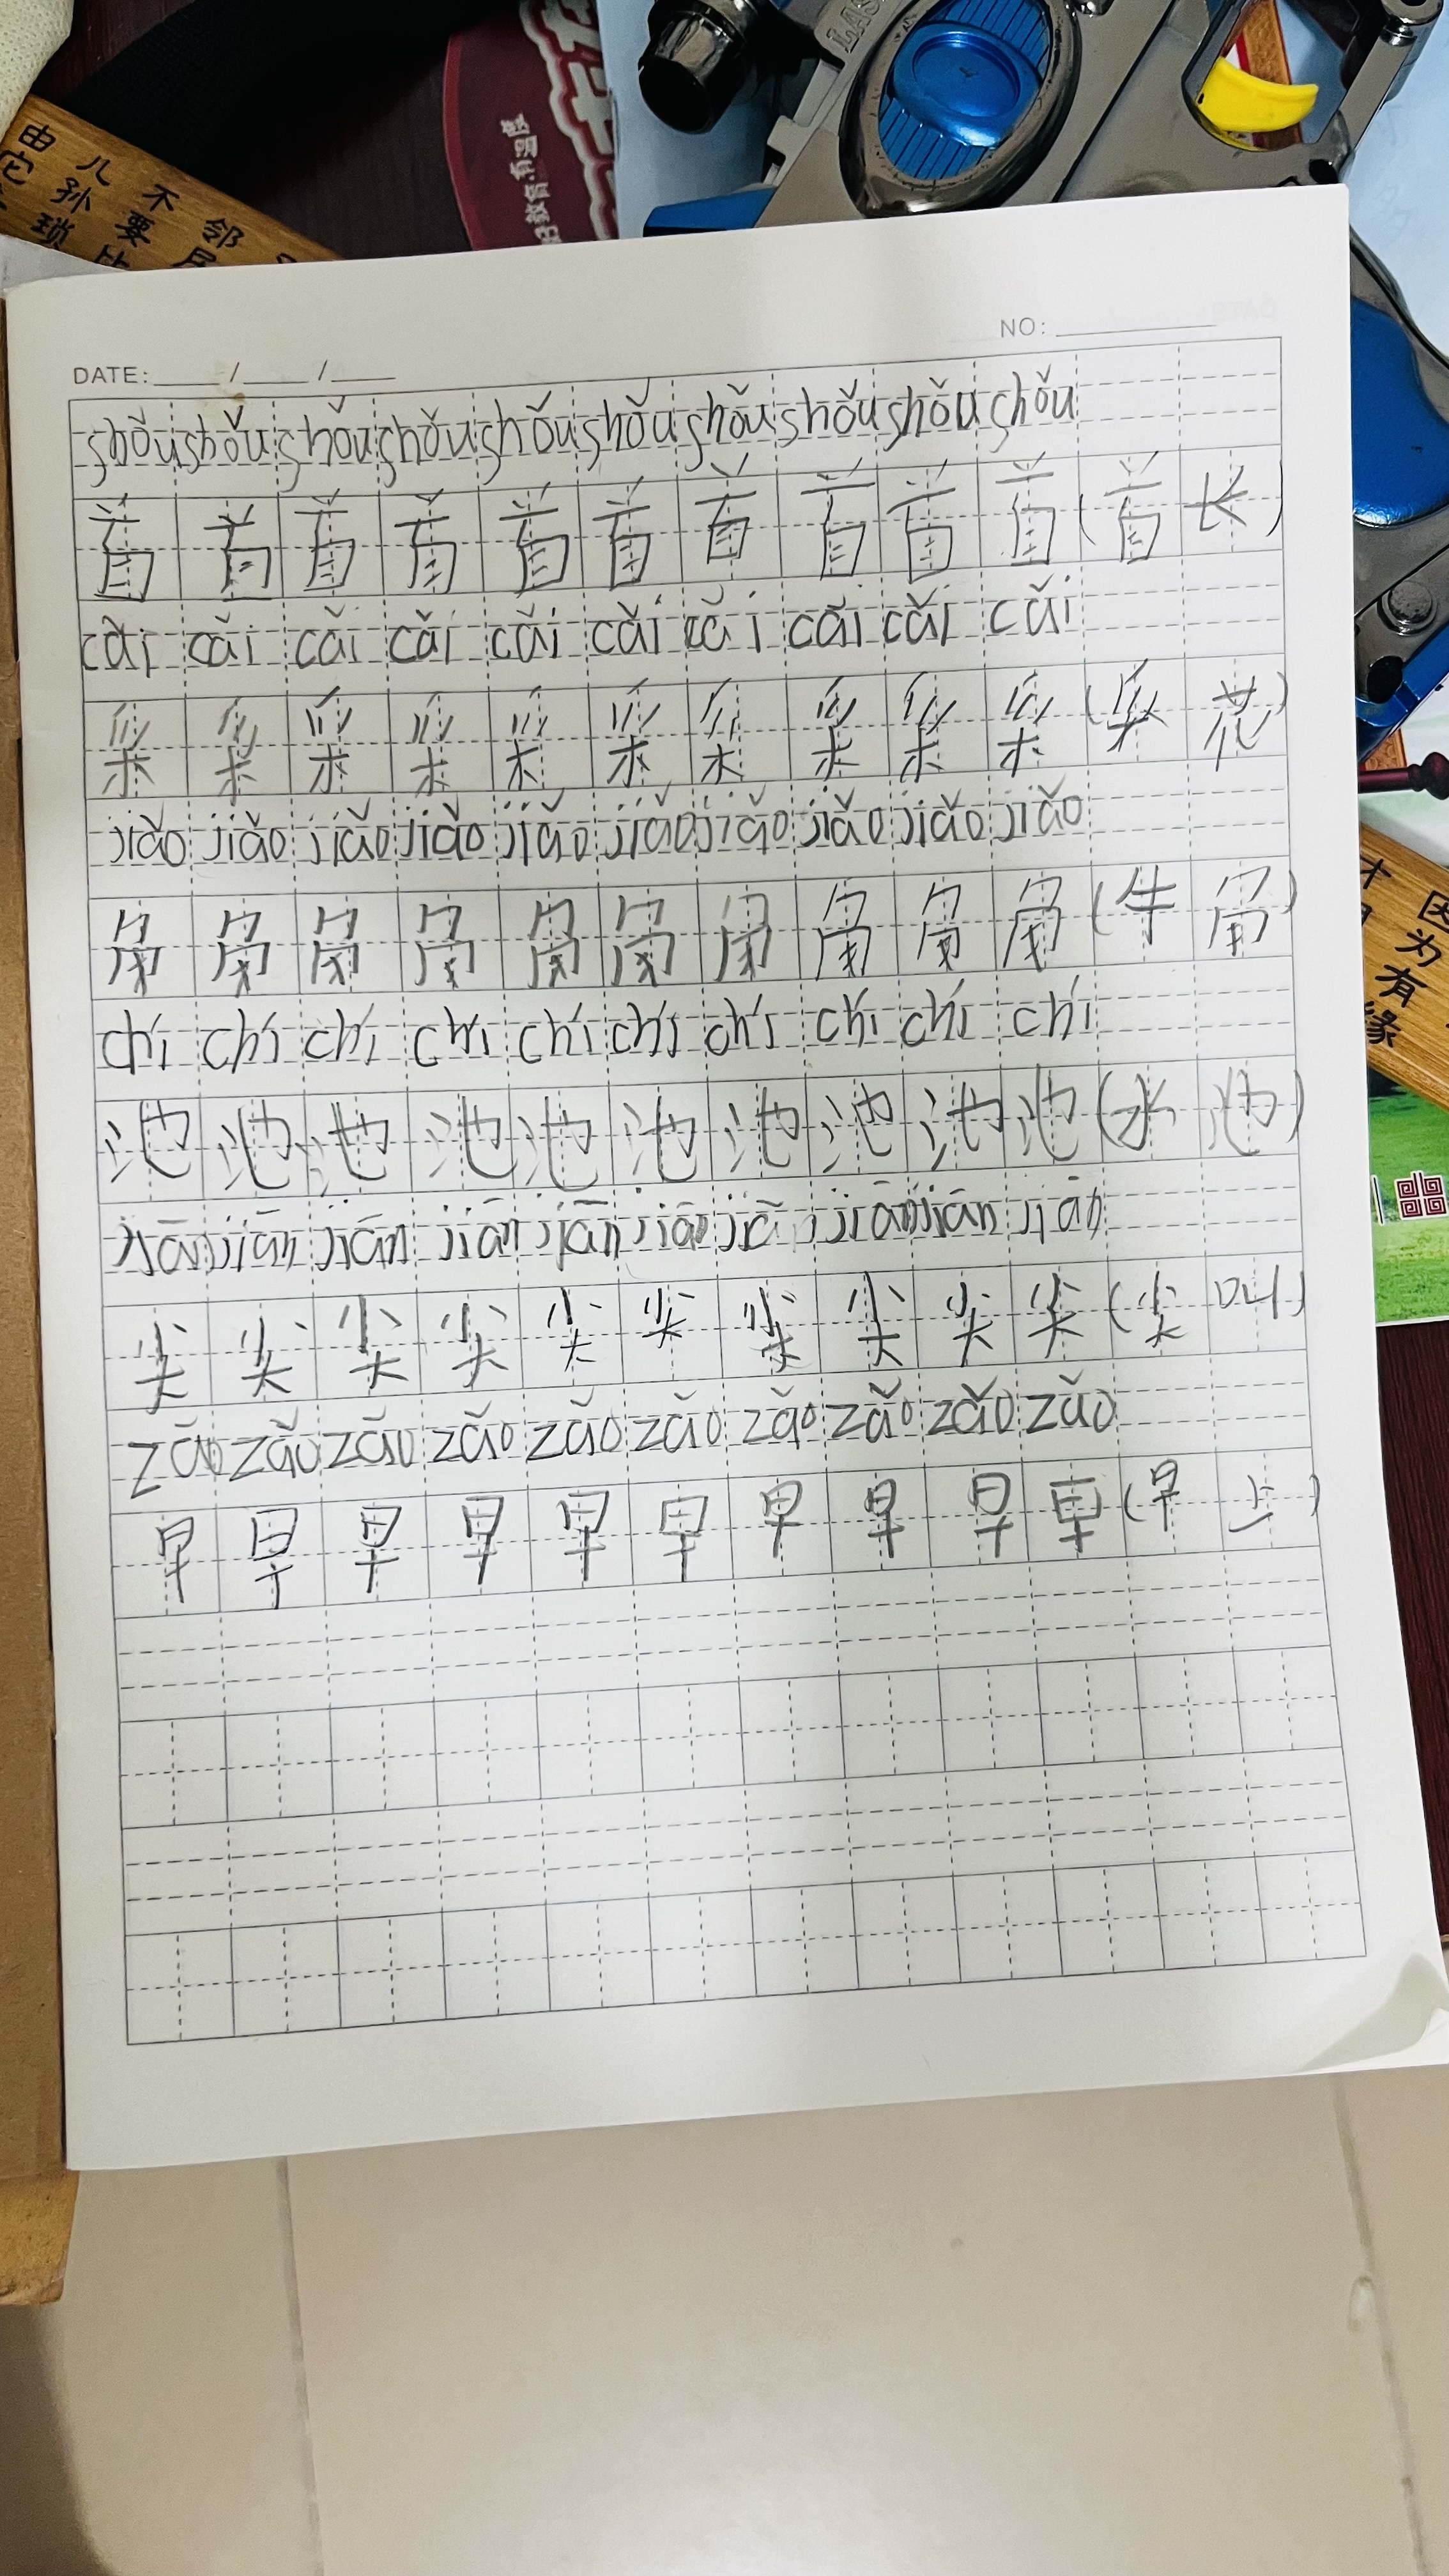 由 儿 不 邻
孙 要
琐 比
好教育有温度
LAS
DATE: / /
NO:
shǒu shǒu shǒu shǒu shǒu shǒu shǒu shǒu shǒu shǒu
首 首 首 首 首 首 首 首 首 首 (首 长)
cǎi cǎi cǎi cǎi cǎi cǎi cǎi cǎi cǎi cǎi
采 采 采 采 采 采 采 采 采 采 (采 花)
jiǎo jiǎo jiǎo jiǎo jiǎo jiǎo jiǎo jiǎo jiǎo jiǎo
角 角 角 角 角 角 角 角 角 角 (牛 角)
chí chí chí chí chí chí chí chí chí chí
池 池 池 池 池 池 池 池 池 池 (水 池)
jiān jiān jiān jiān jiān jiān jiā jiān jiān jiān
尖 尖 尖 尖 尖 尖 尖 尖 尖 尖 (尖 叫)
zǎo zǎo zǎo zǎo zǎo zǎo zǎo zǎo zǎo zǎo
早 早 早 早 早 早 早 早 早 早 (早 上)
因为有缘